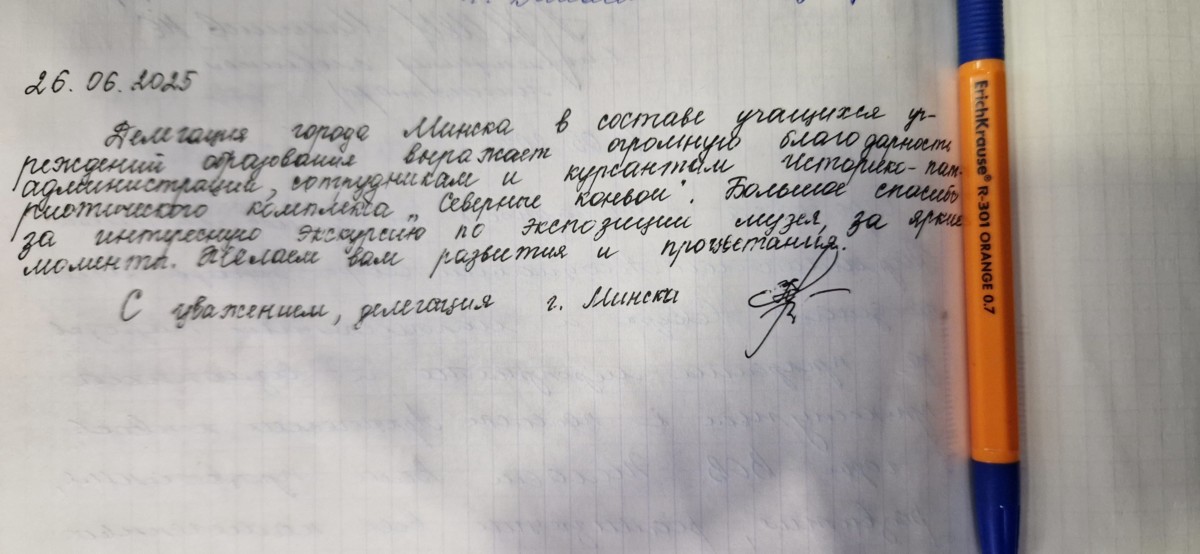 26.06.2025
Делегация города Минска в составе учащихся уч-
реждений образования выражает огромную благодарность
администрации, сотрудникам и курсантам историко-пат-
риотического комплекса „Северные конвои". Большое спасибо
за интересную экскурсию по экспозиции музея, за яркие
моменты. Желаем вам развития и процветания.
С уважением, делегация г. Минска
ErichKrause® R-301 ORANGE 0.7